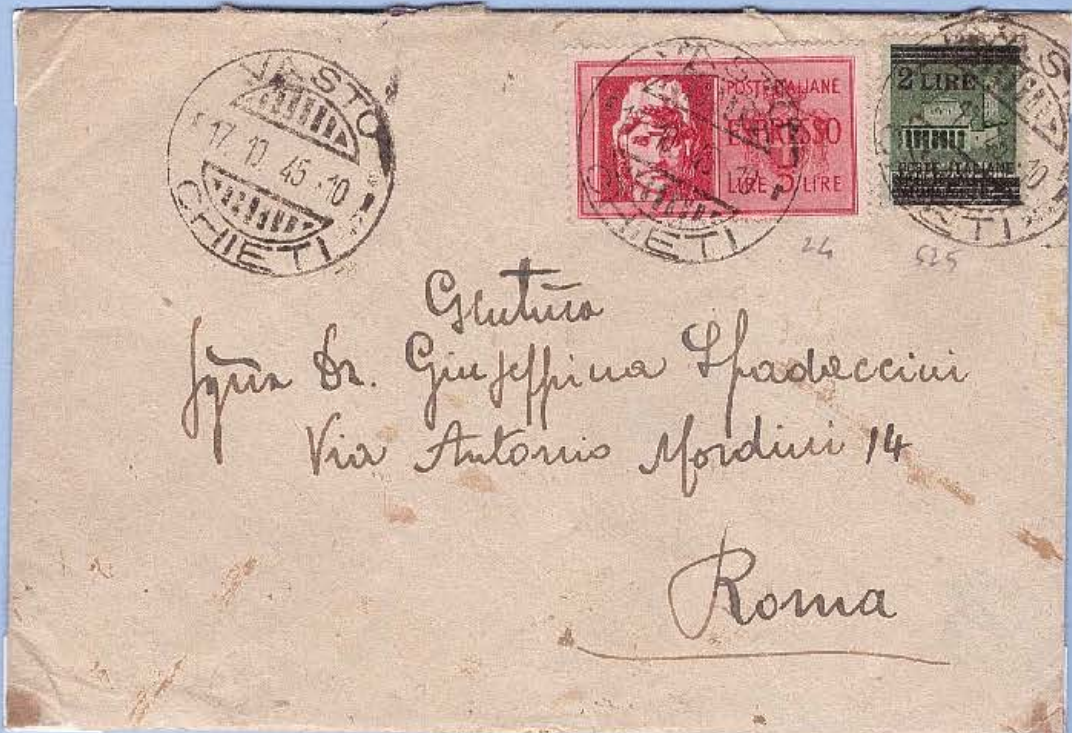 VASTO
17.10.45.10
CHIETI
POSTE ITALIANE
ESPRESSO
LIRE 5 LIRE
2 LIRE
POSTE ITALIANE
VASTO
CHIETI
24
525
Dr. Giuseppina Spadaccini
Via Antonio Mordini 14
Roma